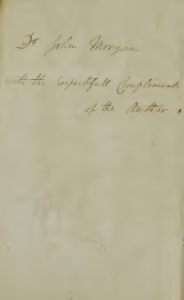 Dr John Morgan
with the respectfull Compliments
of the Author